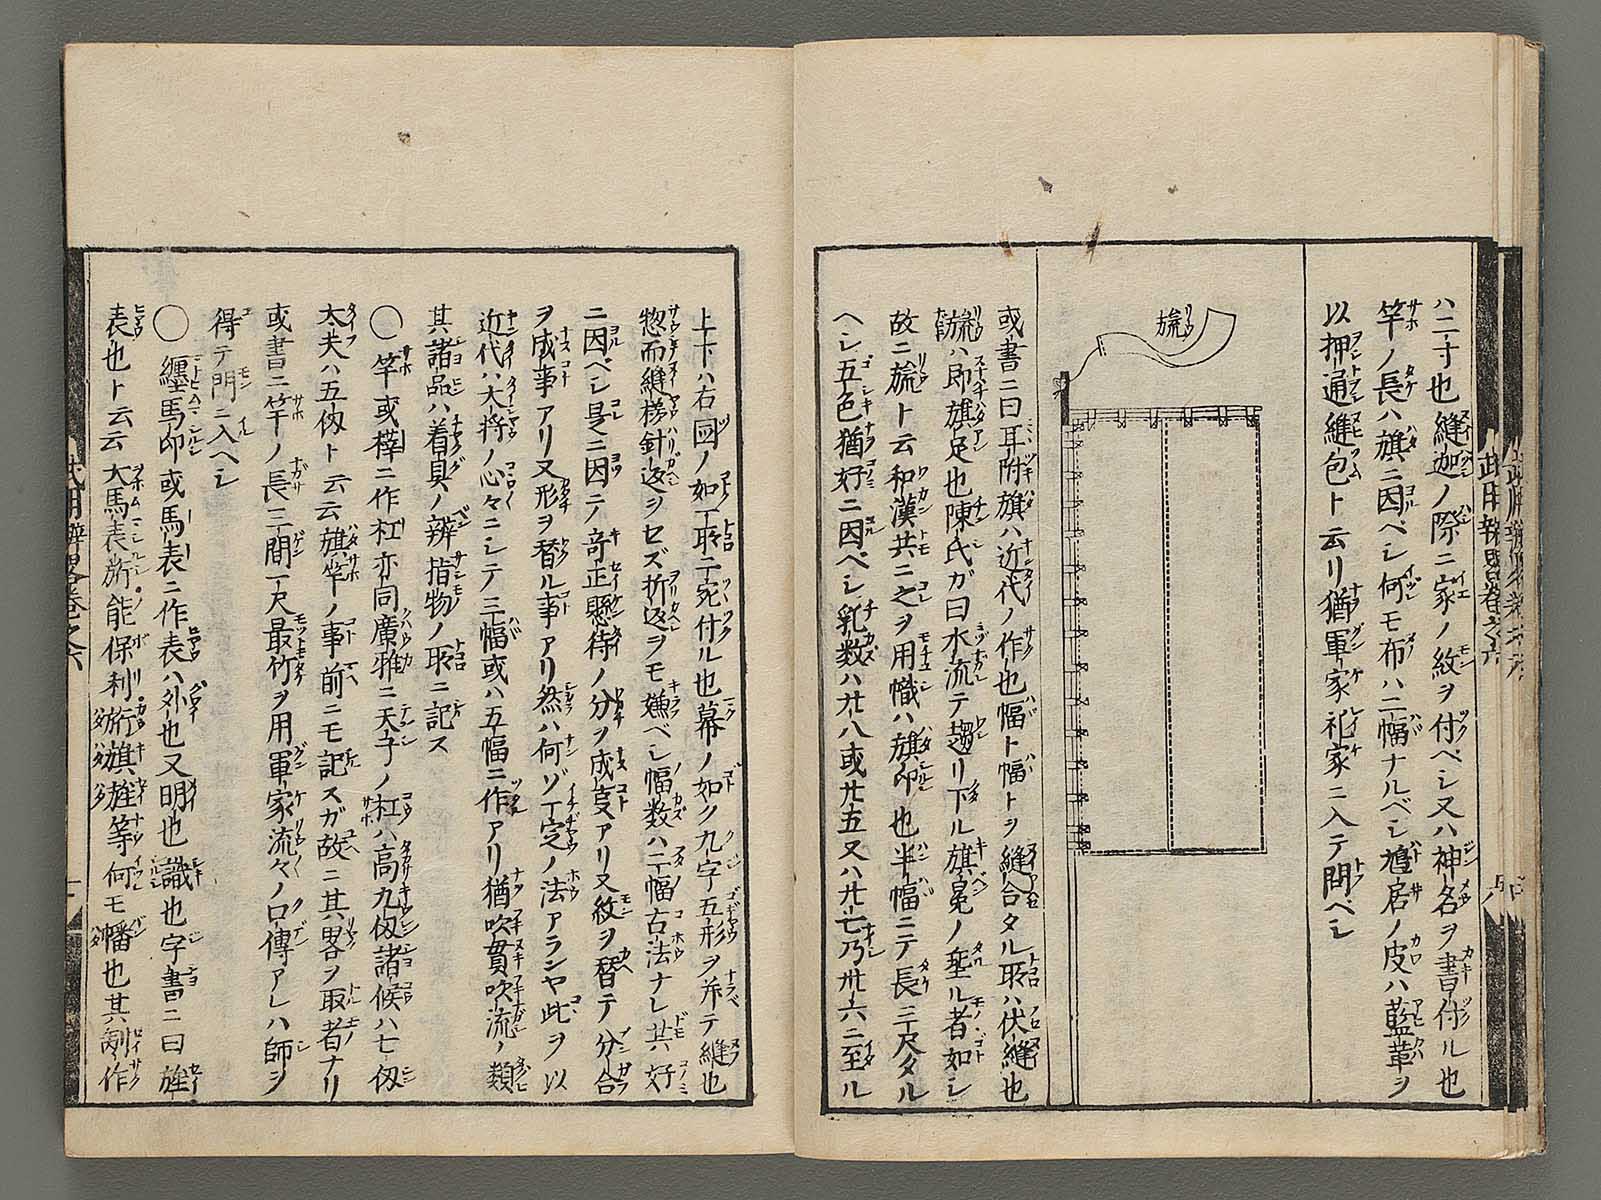 ハ二寸也縫迦ノ際ニ家ノ紋ヲ付ベシ又ハ神名ヲ書付ル也
竿ノ長ハ旗ニ因ベシ何モ布ハ二幅ナルベシ ノ皮ハ藍革ヲ
以押通縫包ト云リ猶軍家礼家ニ入テ問ベシ
旒
或書ニ曰耳附旗ハ近代ノ作也幅ト幅トヲ縫合タル所ハ伏縫也
旒ハ即旗足也陳氏ガ曰水流テ趨リ下ル旗冕ノ埀ル者如シ
故ニ旒ト云和漢共ニ之ヲ用幟ハ旗印也半幅ニテ長三尺タル
ヘシ五色猶好ニ因ベシ乳数ハ廿八或廿五又ハ廿七乃卅六ニ至ル
上下ハ右図ノ如丁取ニ宛付ル也幕ノ如ク九字五形ヲ并テ縫也
惣而縫様針返ヲセズ折返ヲモ嫌ベシ幅数ハ二幅古法ナレ共好
ニ因ベシ是ニ因テ奇正懸待ノ分ヲ成事アリ又紋ヲ替テ分合
ヲ成事アリ又形ヲ替ル事アリ然ハ何ゾ一定ノ法アランヤ此ヲ以
近代ハ大将ノ心々ニシテ三幅或ハ五幅ニ作アリ猶吹貫吹流ノ類
其諸品ハ着具ノ辨指物ノ所ニ記ス
〇竿或 ニ作杠亦同廣雅ニ天子ノ杠ハ高九仭諸候ハ七仭
大夫ハ五仭ト云云旗竿ノ事前ニモ記スガ故ニ其畧ヲ取者ナリ
或書ニ竿ノ長三間一尺最竹ヲ用軍家流々ノ口傳アレハ師ヲ
得テ門ニ入ヘシ
〇纏馬印或馬表ニ作表ハ外也又明也識也字書ニ曰旌
表也ト云云大馬表 能保利 旗旌等何モ幡也其 作
武用辨畧巻之六